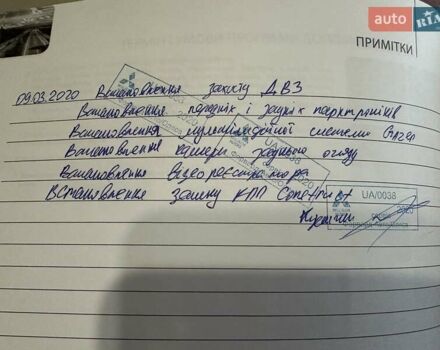 AUTO RIA
ПРИМІТКИ
09.03.2020 Встановлення захисту ДВЗ
Встановлення передніх і задніх парктроніків
Встановлення мультимедійної системи Gazer
Встановлення камери заднього огляду
Встановлення відеореєстратора
Встановлення замку КПП Construct
UA/0038
UA/0038
UA/0038
2020